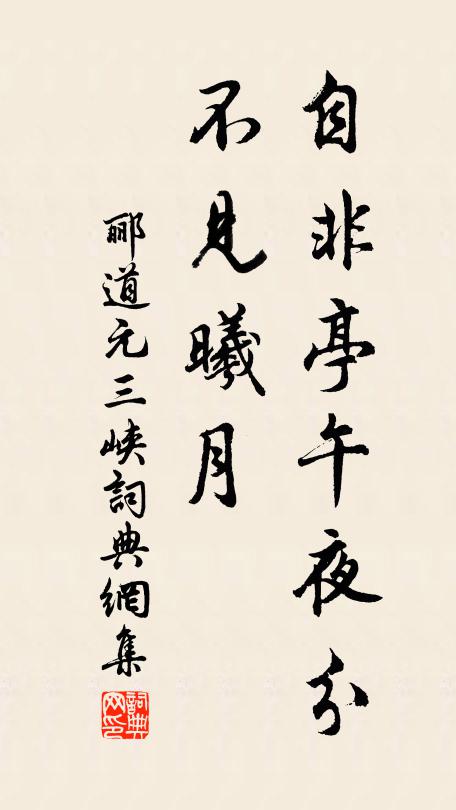 自非亭午夜分
不見曦月
酈道元三峽詞典網集
詞典网印